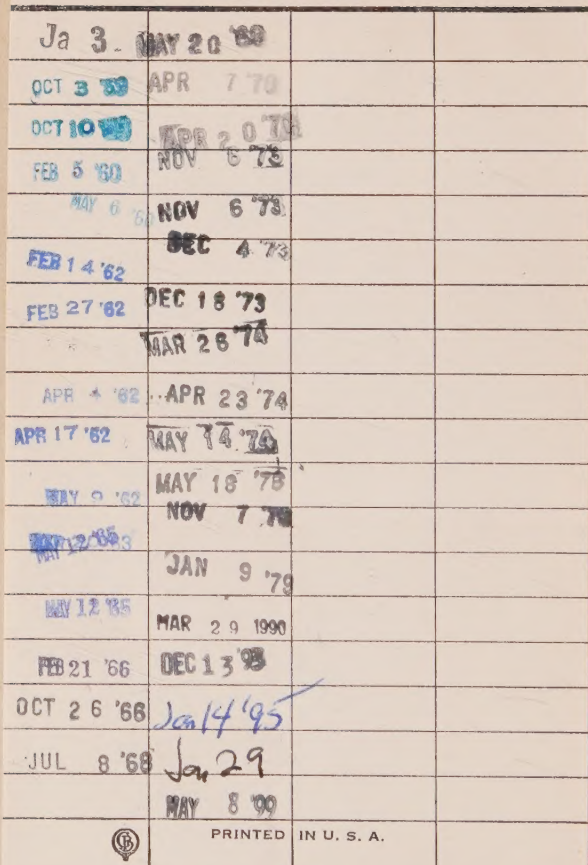 Ja 3- MAY 20
OCT 3 APR 7 70
OCT 10 APR 20
FEB 5 '60 NOV 6 '73
MAY 6 NOV 6 '73
DEC 4 '73
FEB 14 '62
FEB 27 '62 DEC 18 '73
MAR 26 '74
APR '62 APR 23 '74
APR 17 '62 MAY 14 '74
MAY 9 '62 MAY 18
NOV 7
MAY 12 '65
JAN 9 '79
MAY 12 '65 MAR 29 1990
FEB 21 '66 DEC 13
OCT 26 '66 Jan 14 '95
JUL 8 '68 Jan 29
MAY 8 '99
PRINTED IN U. S. A.